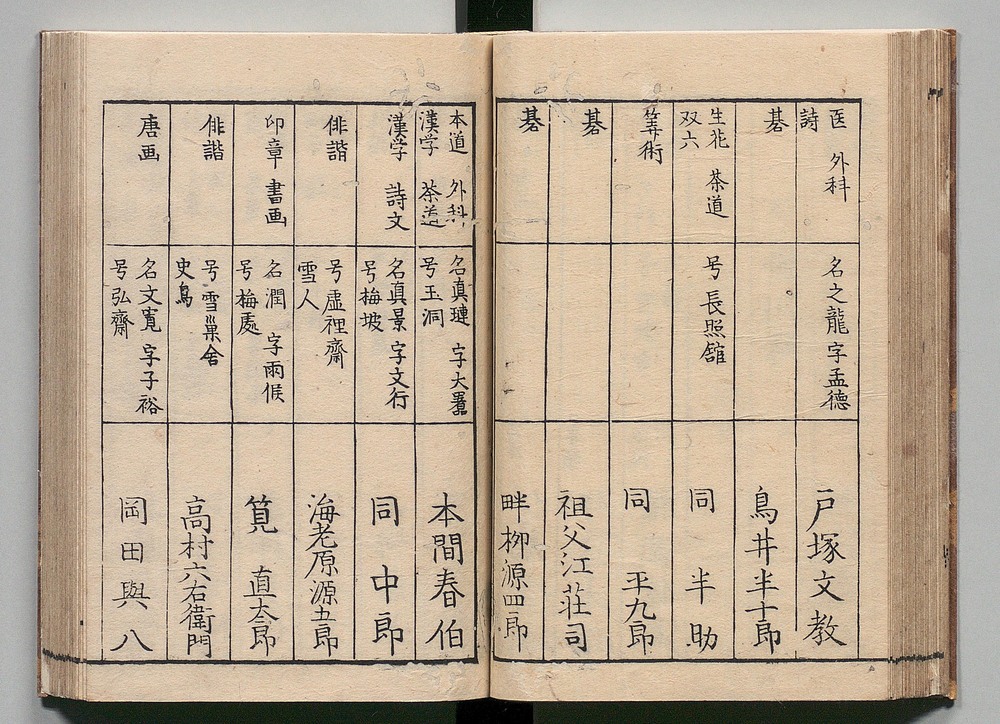 医 外科
詩
名之龍 字孟徳
戸塚文教
碁
鳥井半十郎
生花 茶道
双六
号 長照舘
同 半助
筭術
同 平九郎
碁
祖父江荘司
碁
畔柳源四郎
本道 外科
漢学 茶道
名真璉 字大
号玉洞
本間春伯
漢学 詩文
名真景 字文行
号梅坡
同 中郎
俳諧
号虚裡齋
雪人
海老原源五郎
印章 書画
名潤 字雨候
号梅處
筧 直太郎
俳諧
号雪巢舎
史鳥
高村六右衛門
唐画
名文寛 字子裕
号弘齋
岡田與八